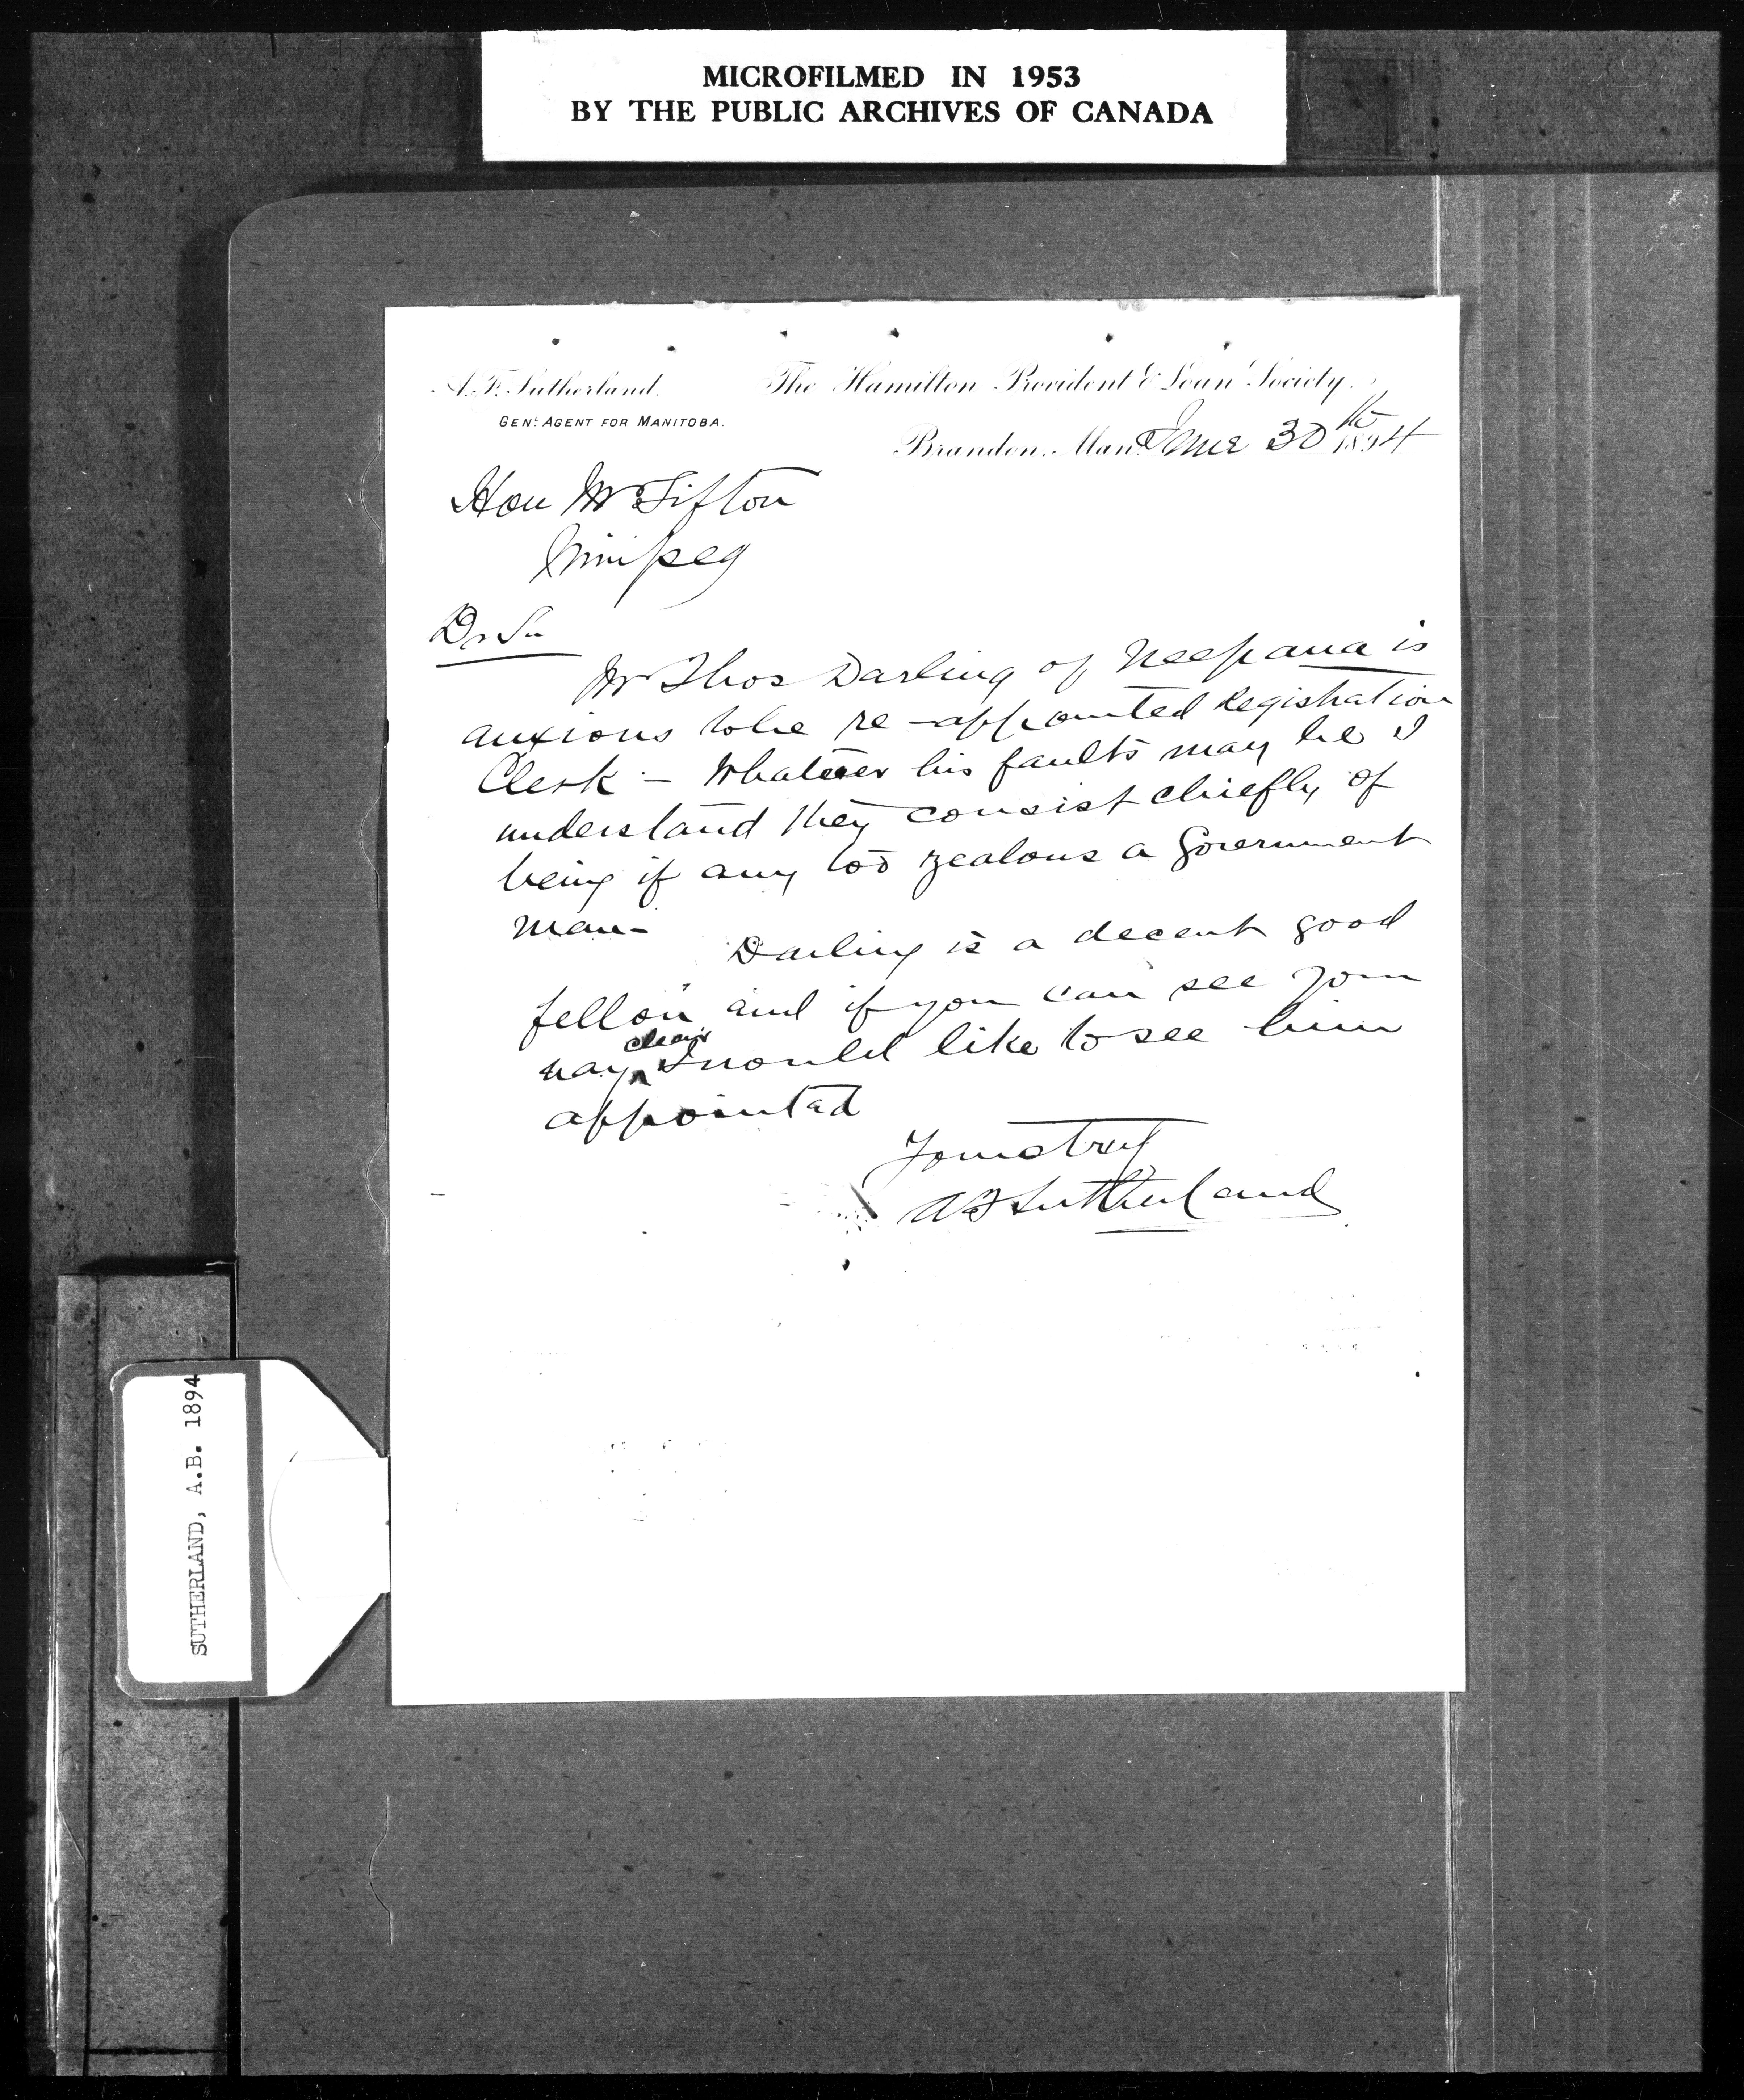 MICROFILMED IN 1953
BY THE PUBLIC ARCHIVES OF CANADA
A. F. Sutherland.
GENL AGENT FOR MANITOBA.
The Hamilton Provident & Loan Society.
Brandon, Man. June 30th 1894
Hon Mr Sifton
Winipeg
Dr Sir
Mr Thos Darling of Neepawa is
anxious to be re-appointed Registration
Clerk - Whatever his faults may be I
understand they consist chiefly of
being if any too zealous a Government
man-
Darling is a decent good
fellow and if you can see your
way clear I would like to see him
appointed
Yours truly
A F Sutherland
SUTHERLAND, A.B. 1894